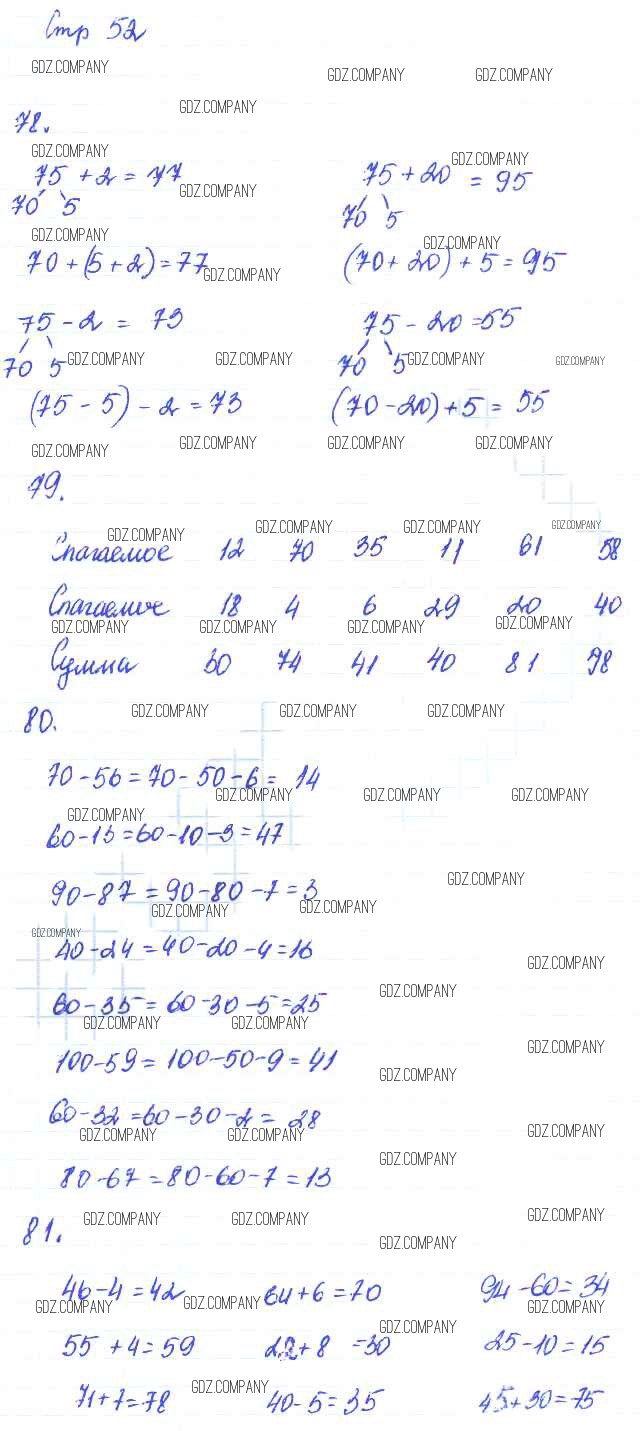 Стр 52
GDZ.COMPANY GDZ.COMPANY GDZ.COMPANY
GDZ.COMPANY
78.
GDZ.COMPANY GDZ.COMPANY
75 + 2 = 77 75 + 20 = 95
GDZ.COMPANY
70 5 70 5
GDZ.COMPANY GDZ.COMPANY
70 + (5 + 2) = 77 (70 + 20) + 5 = 95
GDZ.COMPANY
75 - 2 = 73 75 - 20 = 55
70 5 70 5
GDZ.COMPANY GDZ.COMPANY GDZ.COMPANY GDZ.COMPANY
(75 - 5) - 2 = 73 (70 - 20) + 5 = 55
GDZ.COMPANY GDZ.COMPANY GDZ.COMPANY GDZ.COMPANY
79.
GDZ.COMPANY GDZ.COMPANY GDZ.COMPANY GDZ.COMPANY
Слагаемое 12 70 35 11 61 58
Слагаемое 18 4 6 29 20 40
GDZ.COMPANY GDZ.COMPANY GDZ.COMPANY GDZ.COMPANY
Сумма 30 74 41 40 81 98
80.
GDZ.COMPANY GDZ.COMPANY GDZ.COMPANY
70 - 56 = 70 - 50 - 6 = 14
GDZ.COMPANY GDZ.COMPANY GDZ.COMPANY
GDZ.COMPANY
60 - 13 = 60 - 10 - 3 = 47
GDZ.COMPANY
90 - 87 = 90 - 80 - 7 = 3
GDZ.COMPANY GDZ.COMPANY
GDZ.COMPANY
40 - 24 = 40 - 20 - 4 = 16
GDZ.COMPANY
GDZ.COMPANY
60 - 35 = 60 - 30 - 5 = 25
GDZ.COMPANY GDZ.COMPANY
GDZ.COMPANY
100 - 59 = 100 - 50 - 9 = 41
GDZ.COMPANY
60 - 32 = 60 - 30 - 2 = 28
GDZ.COMPANY GDZ.COMPANY GDZ.COMPANY
GDZ.COMPANY
80 - 67 = 80 - 60 - 7 = 13
81.
GDZ.COMPANY GDZ.COMPANY GDZ.COMPANY
GDZ.COMPANY
46 - 4 = 42 64 + 6 = 70 94 - 60 = 34
GDZ.COMPANY GDZ.COMPANY GDZ.COMPANY
GDZ.COMPANY
55 + 4 = 59 22 + 8 = 30 25 - 10 = 15
GDZ.COMPANY
71 + 7 = 78 40 - 5 = 35 45 + 30 = 75